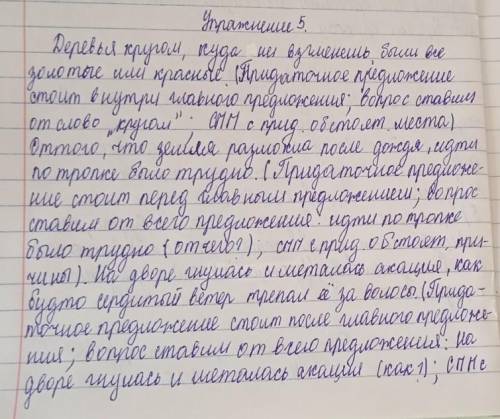 Упражнение 5.
Деревья кругом, куда ни взглянешь, были все
золотые или красные. (Придаточное предложение
стоит внутри главного предложения; вопрос ставим
от слово „кругом"; СПП с прид. обстоят. места)
Оттого, что земля размокла после дождя, идти
по тропке было трудно. (Придаточное предложе-
ние стоит перед главным предложением; вопрос
ставим от всего предложения: идти по тропке
было трудно (отчего?); СПП с прид обстоят, при-
чины). На дворе гнулась и металась акация, как
будто сердитый ветер трепал её за волосы. (Прида-
точное предложение стоит после главного предложе-
ния; вопрос ставим от всего предложения: На
дворе гнулась и металась акация (как?); СПП с